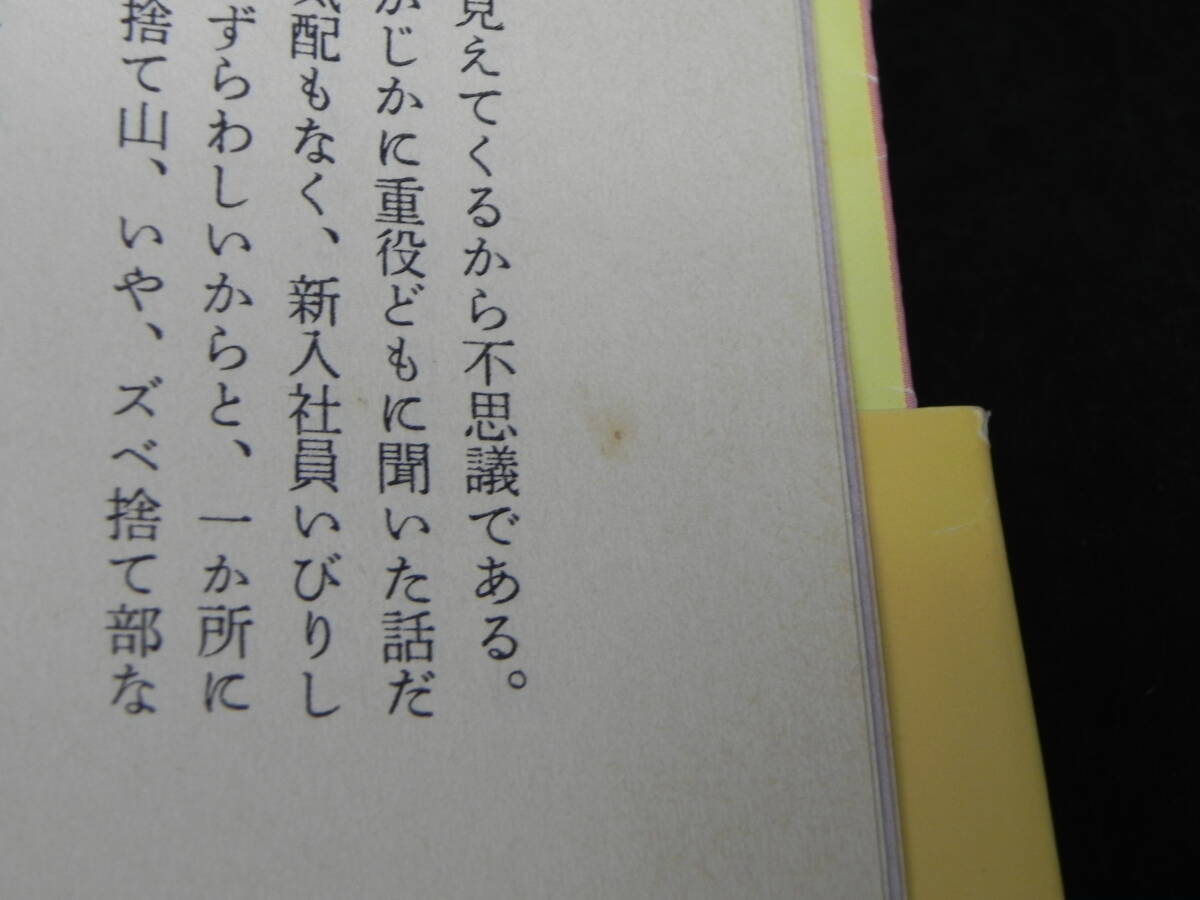 見えてくるから不思議である。
じかに重役どもに聞いた話だ
配もなく、新入社員いびりし
ずらわしいからと、一か所に
捨て山、いや、ズベ捨て部な